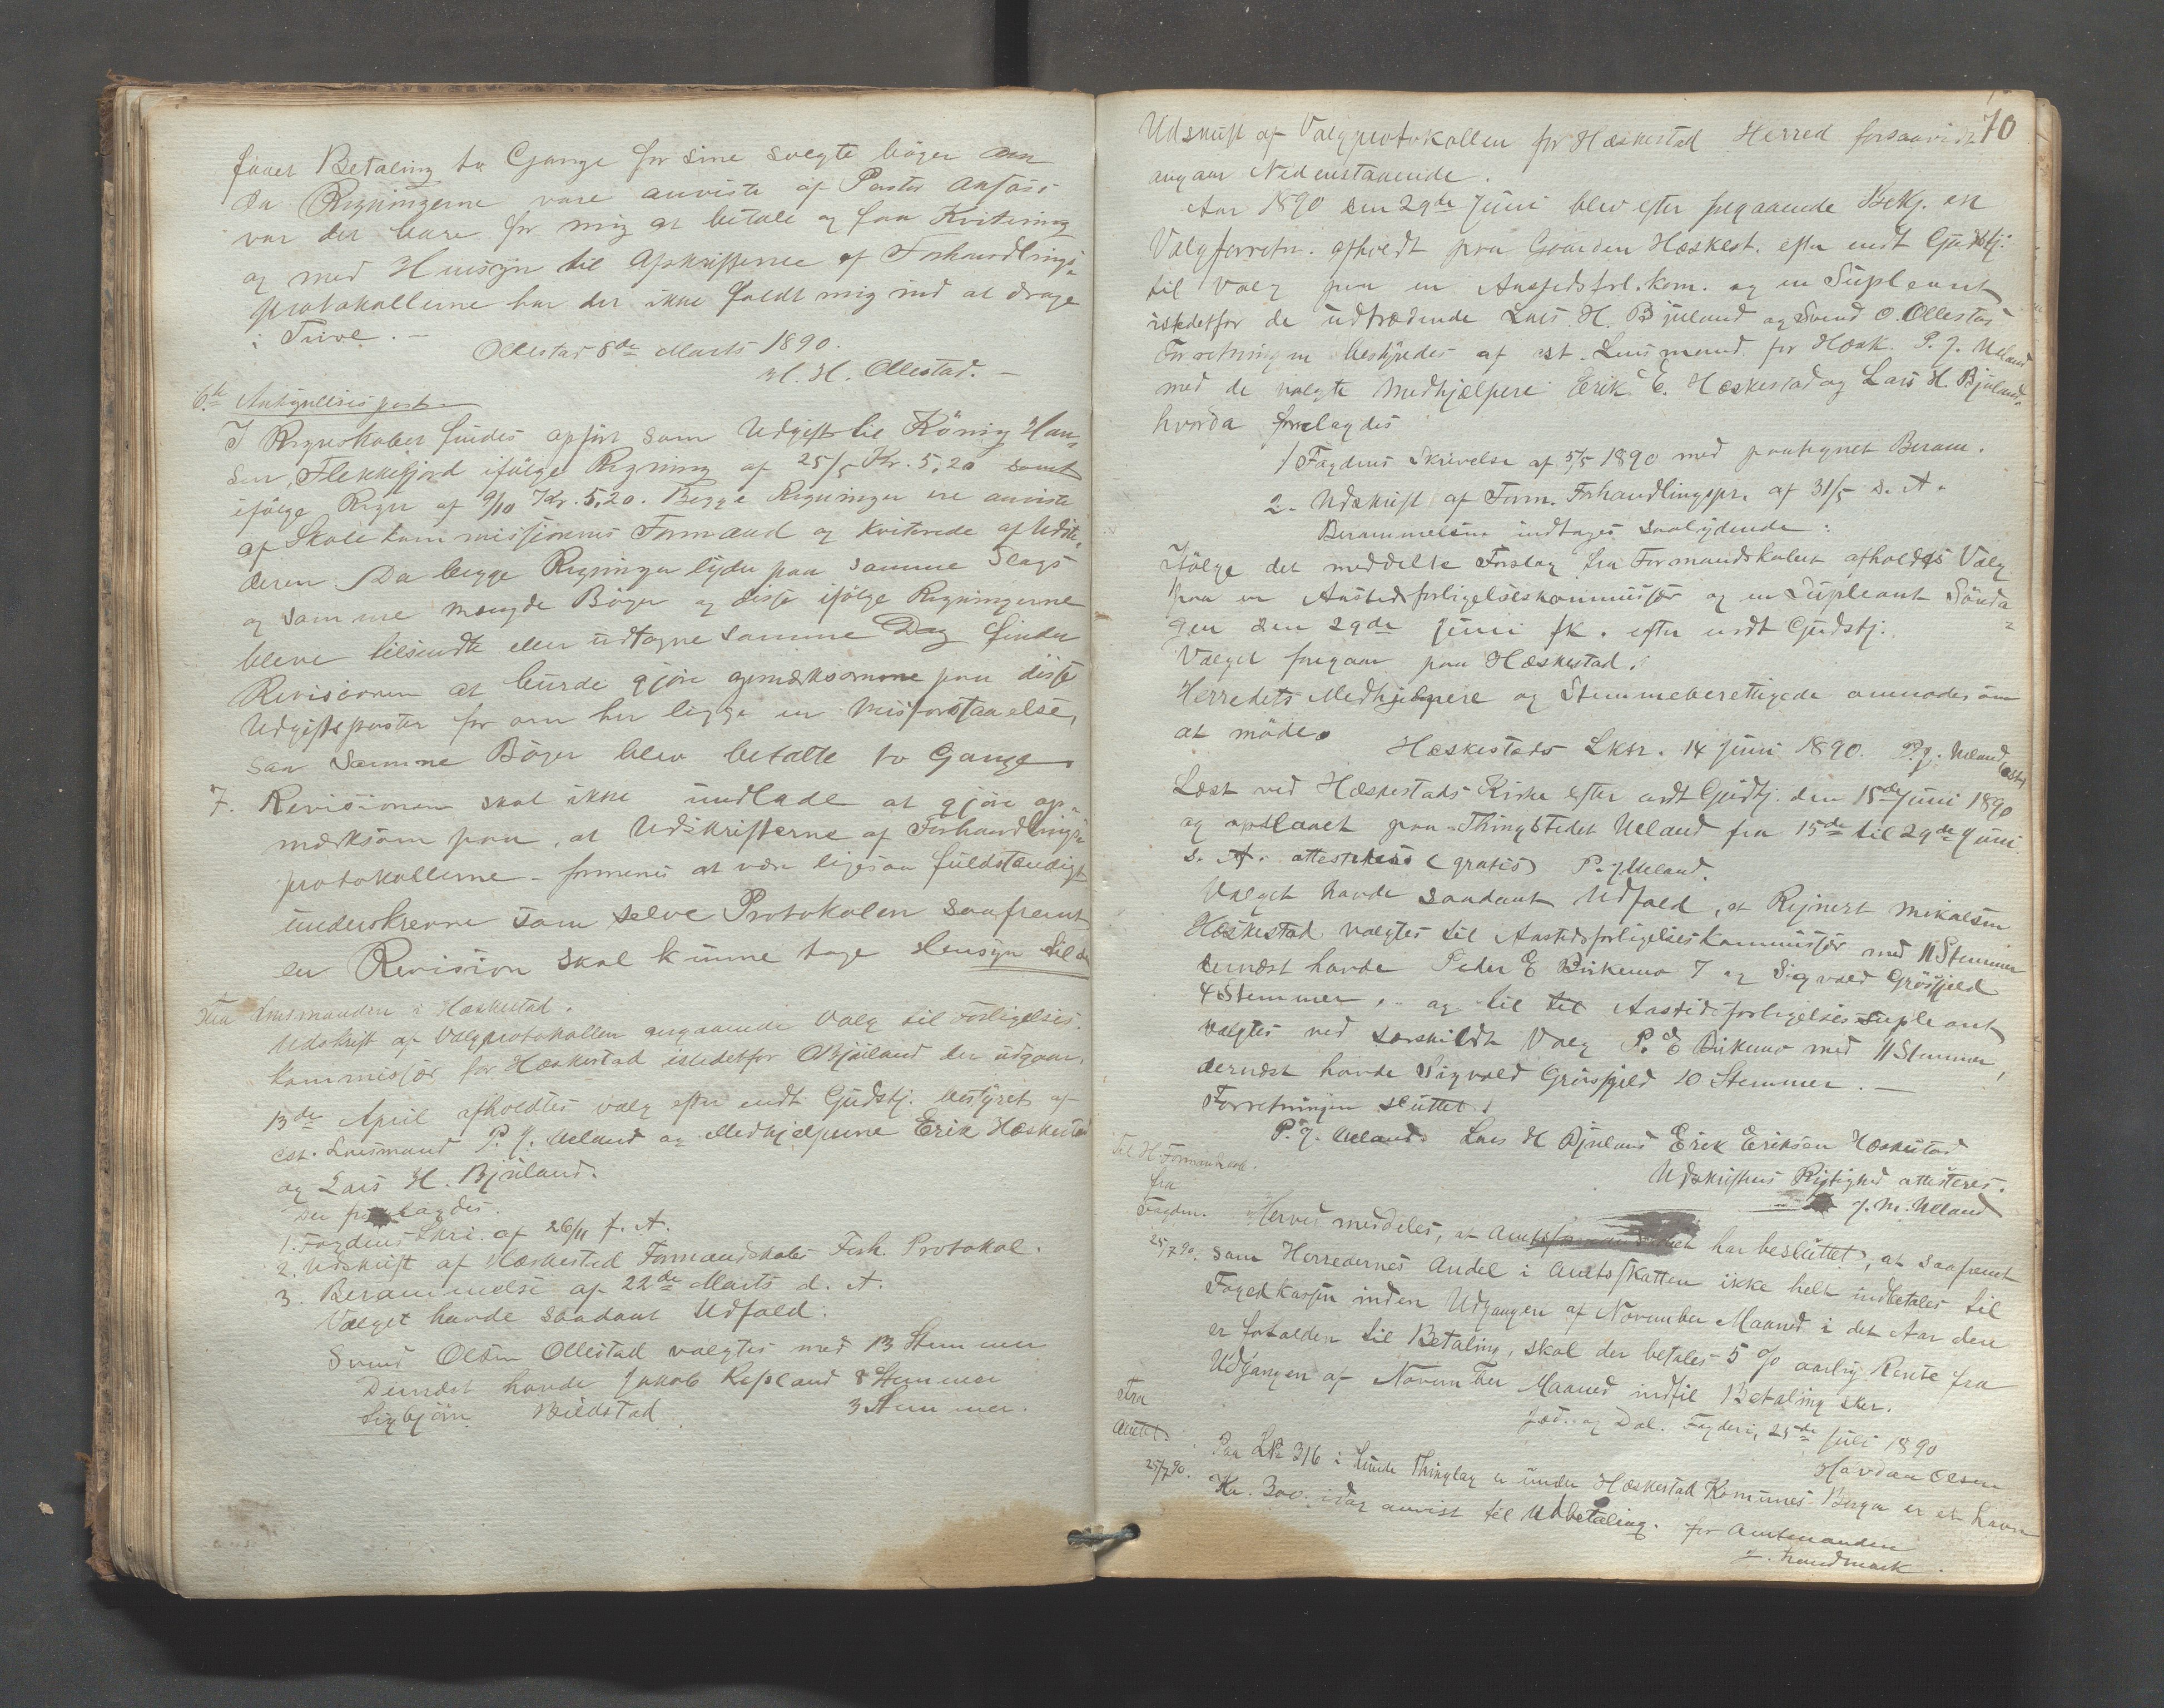 faaet Betaling to Gange for sine solgte bøger
da Regningerne vare anviste af Pastor Anfoss
var det bare for mig at betale og faa Kvittering
og med Hensyn til Afskrifterne af Forhandlings-
protokollerne har det ikke faldt mig ind at drage
i Tvivl. -
Ollestad 8de Marts 1890.
H. H. Ollestad. -
6te Antegnelsespost
I Regnskabet findes opført som Udgift til König Han-
sen, Flekkefjord ifølge Regning af 25/5 Kr. 5,20 samt
ifølge Regn af 9/10 Kr. 5,20. Begge Regninger ere anviste
af Skolekommissionens Formand og kviterede af Udste-
deren. Da begge Regninger lyder paa samme Slags
og samme mængde Bøger og disse ifølge Regningerne
bleve tilsendte eller udtagne samme Dag finder
Revisionen at burde gjøre opmærksomme paa disse
Udgiftsposter for om her ligger en Misforstaaelse,
saa Samme Bøger blev betalte to Gange.
7. Revisionen skal ikke undlade at gjøre op-
mærksom paa, at Udskrifterne af Forhandlings-
protokollerne - formenes at være ligesaa fuldstændigt
underskrevne som selve Protokolen saafremt
en Revision skal kunne tage Hensyn til de
Fra Lensmanden i Heskestad.
Udskrift af Valgprotokollen angaaende Valg til Forligelses-
kommissær for Heskestad istedetfor Bjuland der udgaar.
13de April afholdtes valg efter endt Gudstj. bestyret af
cst. Lensmand P. J. Ueland og Medhjelperne Erik Heskestad
og Lars H. Bjuland.
Der fremlagdes.
1. Fogdens Skri. af 26/11 f. A.
2. Udskrift af Heskestad Formandskabs Forh. Protokol.
3. Berammelse af 22de Marts d. A.
Valget havde saadant Udfald:
Svend Olsen Ollestad valgtes med 13 Stemmer
Dernæst havde Jakob Refsland 8 Stemmer
Sigbjørn Bilstad 3 Stemmer.
70
Udskrift af Valgprotokollen for Heskestad Herred forsaavidt
angaar Nedenstaaende.
Aar 1890 den 29de Juni blev efter foregaaende Bekj. en
Valgforretn. afholdt paa Gaarden Heskest. efter endt Gudstj:
til Valg paa en Aastedsforl.kom. og en Supleant
istedetfor de udtrædende Lars H. Bjuland og Svend O. Ollestad
Forretningen bestyredes af cst. Lensmand for Hesk. P. J. Ueland
med de valgte Medhjælpere Erik E. Heskestad og Lars H. Bjuland.
hvorda fremlagdes
1/ Fogdens Skrivelse af 5/5 1890 med paategnet Beram.
2. Udskrift af Form. Forhandlingspr. af 31/5 d. A.
Berammelsen indtages saalydende:
Ifølge det meddelte Forslag fra Formandskabet afholdes Valg
paa en Aastedsforligelseskommissær og en Supleant Sønda-
gen den 29de Juni fk. efter endt Gudstj.
Valget foregaar paa Heskestad.
Herredets Medhjelpere og Stemmeberettigede anmodes om
at møde.
Heskestads Lktr. 14 Juni 1890. P. J. Ueland (cst)
Læst ved Heskestads Kirke efter endt Gudstj. den 15de Juni 1890
og opslaaet paa Thingstedet Ueland fra 15de til 29de Juni.
d. A. attesteres (gratis) P. J. Ueland.
Valget havde saadant Udfald, at Rejnert Mikalsen
Heskestad valgtes til Aastedsforligelseskommissær med 11 Stemmer
dernæst havde Peder E Birkemo 7 og Sigvald Grøsfjeld
4 Stemmer. - og til til Aastedsforligelses supleant
valgtes ved særskildt Valg P. E Birkemo med 11 Stemmer,
dernæst havde Sigvald Grøsfjeld 10 Stemmer. -
Forretningen sluttet.
P. J. Ueland. Lars H Bjuland Erik Eriksen Heskestad
Udskriftens Rigtighed attesteres.
J. M. Ueland
Til H. Formandskab.
fra
Fogden.
25/7 90.
Herved meddeles, at Amtsformandskabet har besluttet, at saafremt
som Herredernes Andel i Amtsskatten ikke helt indbetales til
Fogedkassen inden Udgangen af November Maaned i det Aar den
er forfalden til Betaling, skal der betales 5 % aarlig Rente fra
Udgangen af November Maaned indtil Betaling sker.
Jæd. og Dal. Fogderi, 25de Juli 1890
Havdan Olsen
Fra
Amtet.
25/7 90.
Paa LNr 316 i Lunde Thinglag er under Heskestad Komunes Brug er et havn
Kr. 300. idag anvist til Udbetaling. for Amtmanden